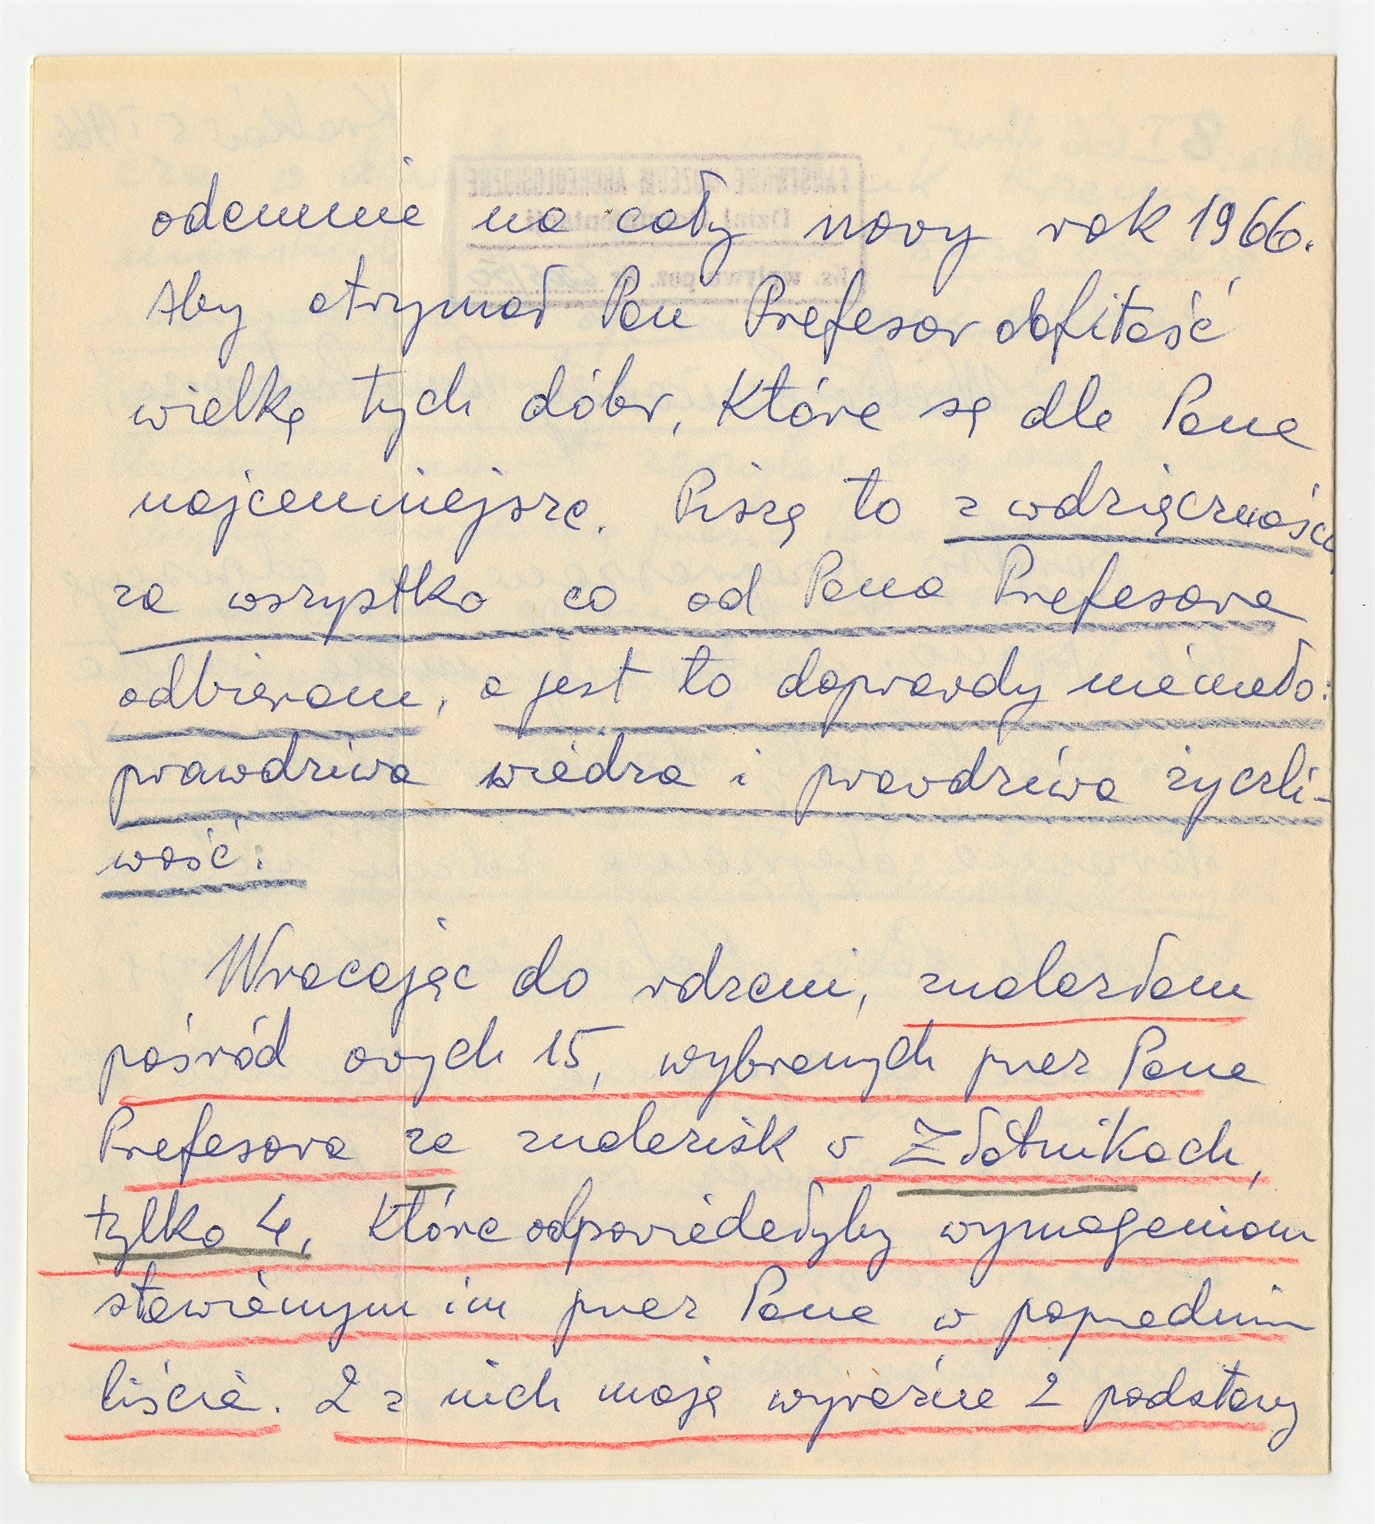 odemnie na cały nowy rok 1966.
Aby otrzymał Pan Profesor obfitość
wielką tych dóbr, które są dla Pana
najcenniejsze. Piszę to z wdzięcznością
za wszystko co od Pana Profesora
odbieram, a jest to doprawdy niemało:
prawdziwa wiedza i prawdziwa życzli-
wość.
Wracając do rdzeni, znalazłam
pośród owych 15, wybranych przez Pana
Profesora ze znalezisk w Złotnikach,
tylko 4, które odpowiadałyby wymaganiom
stawianym im przez Pana w poprzednim
liście. 2 z nich mają wyraźne 2 podstawy